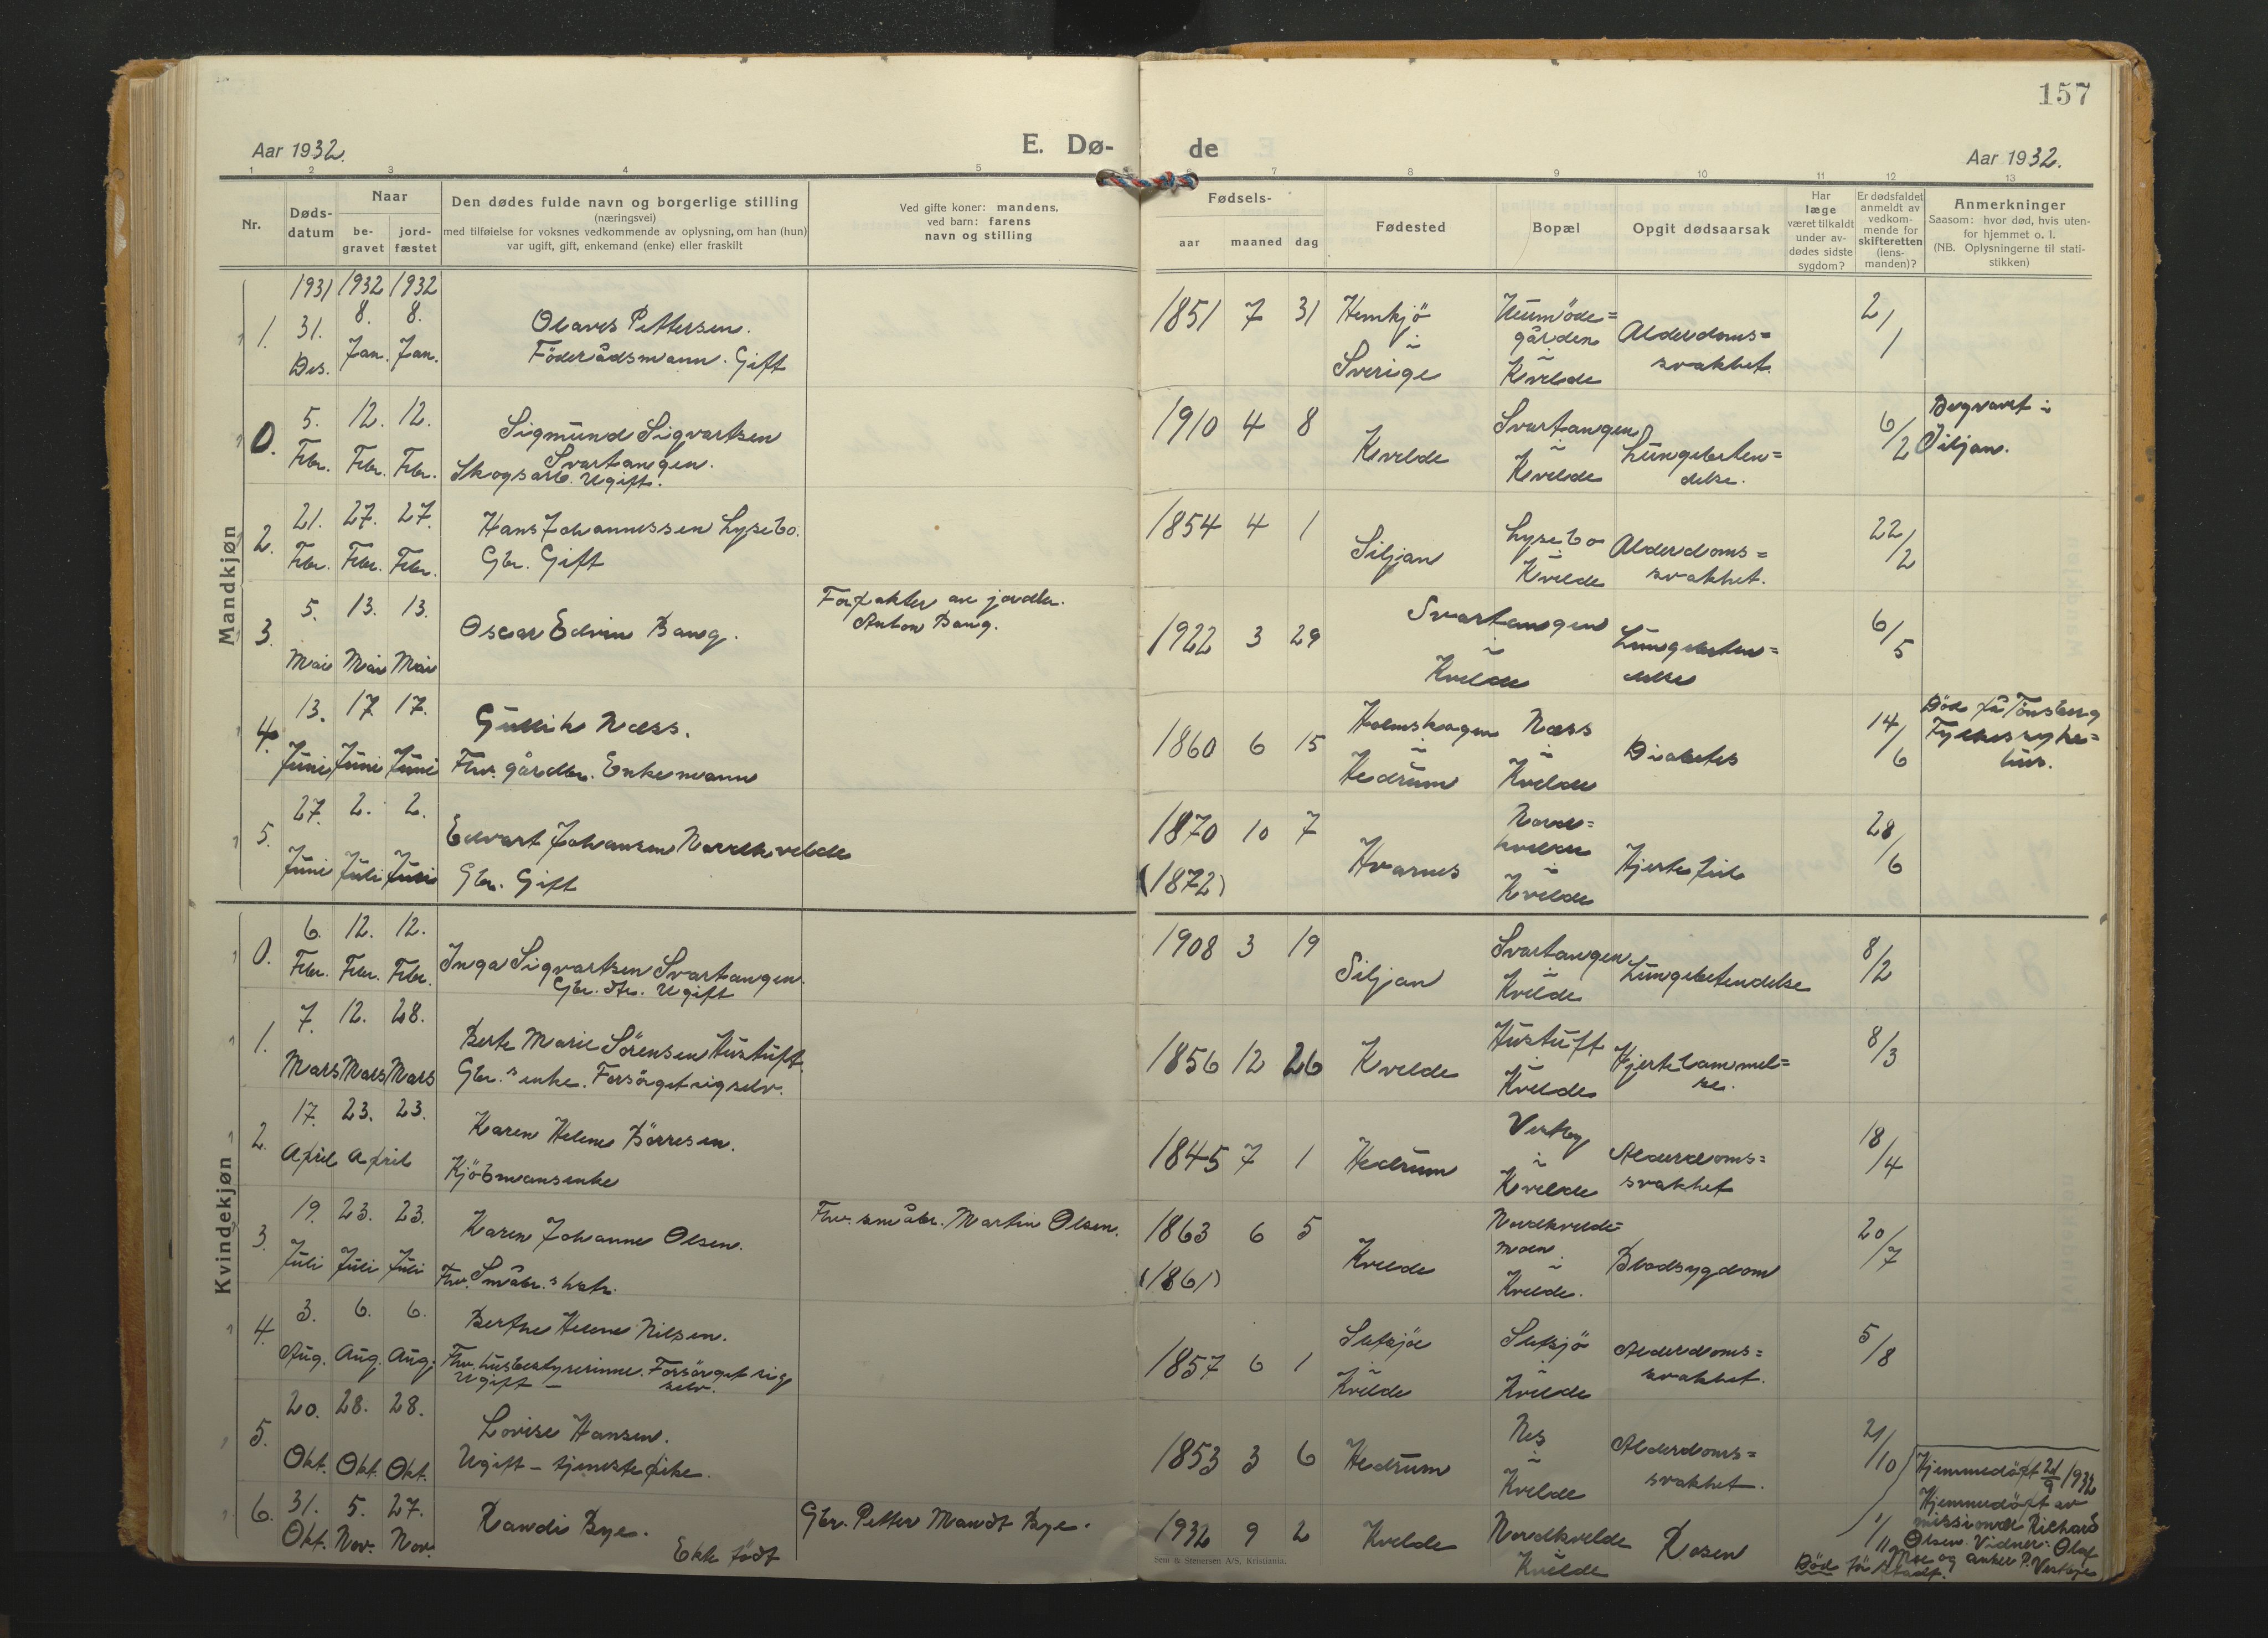 157
Aar 1932.
E. Dø-
de
Aar 1932.
1 2 3 4 5 6 7 8 9 10 11 12 13
Nr.
Døds-
datum
Naar
be-
gravet
jord-
fæstet
Den dødes fulde navn og borgerlige stilling
(næringsvei)
med tilføielse for voksnes vedkommende av oplysning, om han (hun)
var ugift, gift, enkemand (enke) eller fraskilt
Ved gifte koner: mandens,
ved barn: farens
navn og stilling
Fødsels-
aar maaned dag
Fødested
Bopæl
Opgit dødsaarsak
Har
læge
været tilkaldt
under av-
dødes sidste
sygdom?
Er dødsfaldet
anmeldt av
vedkom-
mende for
skifteretten
(lens-
manden)?
Anmerkninger
Saasom: hvor død, hvis uten-
for hjemmet o. l.
(NB. Oplysningerne til stati-
stikken)
Mandkjøn
1931 1932 1932
1. 31. Des. 8. Jan. 8. Jan.
Olaves Pettersen.
Föderådsmann. Gift
1851 7 31
i
Sverige
gården
i
Kvelde
Alderdoms=
svakhet.
2/1
0. 5. Febr. 12. Febr. 12. Febr.
Sigmund Sigvartsen
Svartangen.
Skogsarb. Ugift.
1910 4 8
Kvelde
Svartangen
i
Kvelde
Lungebeten=
delse.
6/2
Begravet i
Siljan.
2. 21. Febr. 27. Febr. 27. Febr.
Hans Johannessen Lysebo.
Gbr. Gift
1854 4 1
Siljan
Lysebo
i
Kvelde
Alderdoms=
svakhet.
22/2
3. 5. Mai 13. Mai 13. Mai
Oscar Edvin Bang.
Forpakter av jordbr.
Anton Bang.
1922 3 29
Svartangen
i
Kvelde
Lungebeten=
delse
6/5
4. 13. Juni 17 Juni 17. Juni
Gullik Næss.
Fhv. gårdbr. Enkemann
1860 6 15
Holmskogen
i
Hedrum
Næss
i
Kvelde
Diabetes
14/6
Död på Tönsberg
Fylkessyke=
hus.
5. 27. Juni 2. Juli 2. Juli
Edvart Johansen Nordkvelde
Gbr. Gift
1870 10 7
(1872)
Hvarnes
Nord=
kvelde
i
Kvelde
Hjertefeil
28/6
Kvindekjøn
0. 6. Febr. 12. Febr. 12. Febr.
Inga Sigvartsen Svartangen.
Gbr. dtr. Ugift
1908 3 19
Siljan
Svartangen
i
Kvelde
Lungebetendelse
8/2
1. 7. Mars 12. Mars 28. Mars
Berte Marie Sörensen Hustuft.
Gbr.s enke. Forsörget sig selv.
1856 12 26
Kvelde
Hustuft
i
Kvelde
Hjertelammel=
se.
8/3
2. 17. April 23. April 23.
Karen Helene Börresen.
Kjöbmansenke
1845 7 1
Hedrum
Vestby
i
Kvelde
Alderdoms=
svakhet
18/4
3. 19. Juli 23. Juli 23. Juli
Karen Johanne Olsen.
Fhv. Småbr.s hstr.
Fhv. småbr. Martin Olsen.
1863 6 5
(1861)
Kvelde
Nordkvelde=
moen
i
Kvelde.
Blodsygdom
20/7
4. 3. Aug. 6. Aug. 6. Aug.
Berthe Helene Nilsen.
Fhv. husbestyrerinne. Forsörget sig
Ugift — selv.
1857 6 1
i
Kvelde
i
Kvelde
Alderdoms=
svakhet.
5/8
5. 20. Okt. 28. Okt. 28. Okt.
Lovise Hansen.
Ugift – tjenestepike.
1853 3 6
Hedrum
Nes
i
Kvelde
Alderdoms=
svakhet.
21/10
6. 31. Okt. 5. Nov. 27. Nov.
Randi Bye.
Ekte födt
Gbr. Petter Mandt Bye.
1932 9 2
Kvelde
Nordkvelde
i
Kvelde
Rosen
1/11
Hjemmedöpt 21/9 1932
Hjemmedöpt av
missionær Richard
Olsen. Vidner: Olaf
Moe og Anker P. Vestbye
Död
Sem & Stenersen A/S, Kristiania.